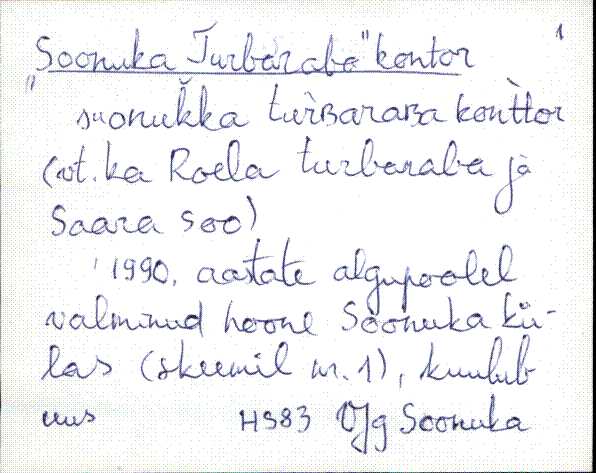 1
"Soonuka Turbaraba" kontor
suonuk̆ka tuŕʙaraʙa kon̆t̀tor
(vt. ka Roela turbaraba ja
Saara soo)
1990. aastate algupoolel
valminud hoone Soonuka kü-
las (skeemil nr. 1), kuulub
uus HS83 Vjg Soonuka